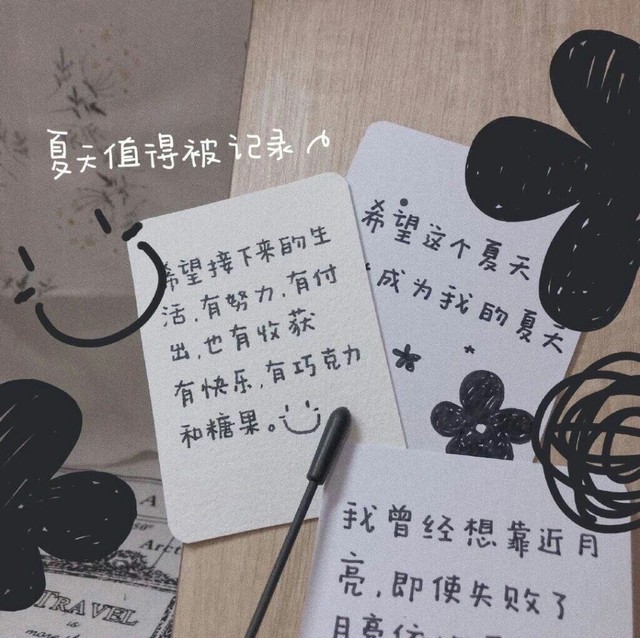 夏天值得被记录
希望接下来的生
活,有努力,有付
出,也有收获
有快乐,有巧克力
和糖果。
希望这个夏天
成为我的夏天
我曾经想靠近月
亮,即使失败了
月亮依
A
Arct
TRAVEL
is
more